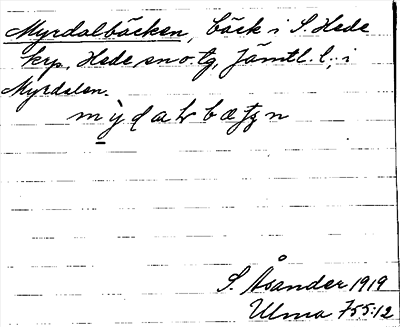 Myrdalbäcken, bäck i S. Hede
krp, Hede sn o. tg, Jämtl. l.; i
Myrdalen.
S. Åsander 1919
Ulma 755:12